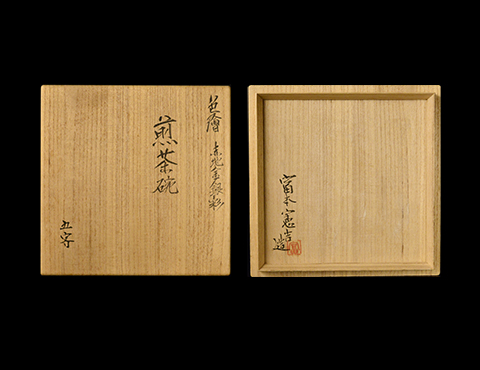 色繪 赤地金銀彩
煎茶碗
五客
富本憲吉
造